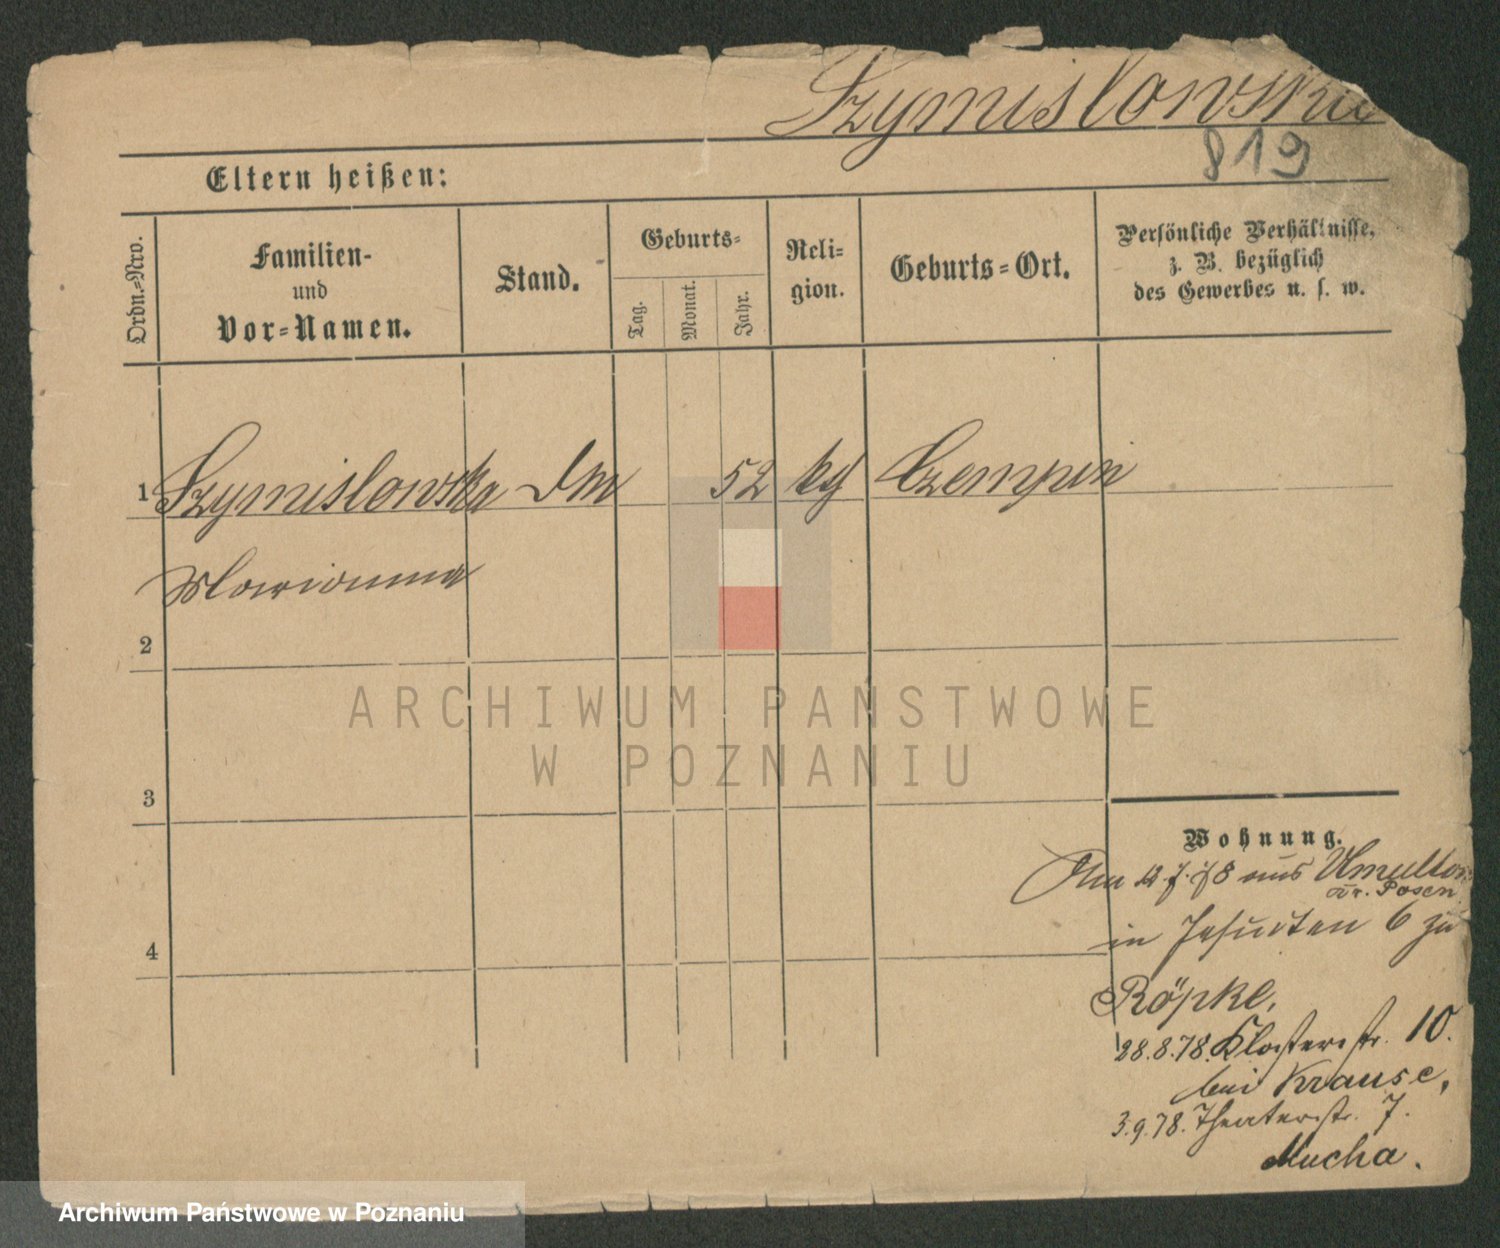 Szymislowska
819
Eltern heißen:
Ordn.=Nro.
Familien-
und
Vor=Namen.
Stand.
Geburts=
Tag.
Monat.
Jahr.
Reli=
gion.
Geburts=Ort.
Persönliche Verhältnisse,
z. B. bezüglich
des Gewerbes u. s. w.
1 Szymislowska 52 kg Czempin
Marianna
2
3
4
Wohnung.
Am 12.7.78 aus Umultow
Kr. Posen
in Jesuiten 6 zu
Röpke,
28.8.78. Klosterstr. 10.
bei Krause,
3.9.78. Theaterstr. 7.
Mucha.
ARCHIWUM PAŃSTWOWE
W POZNANIU
Archiwum Państwowe w Poznaniu